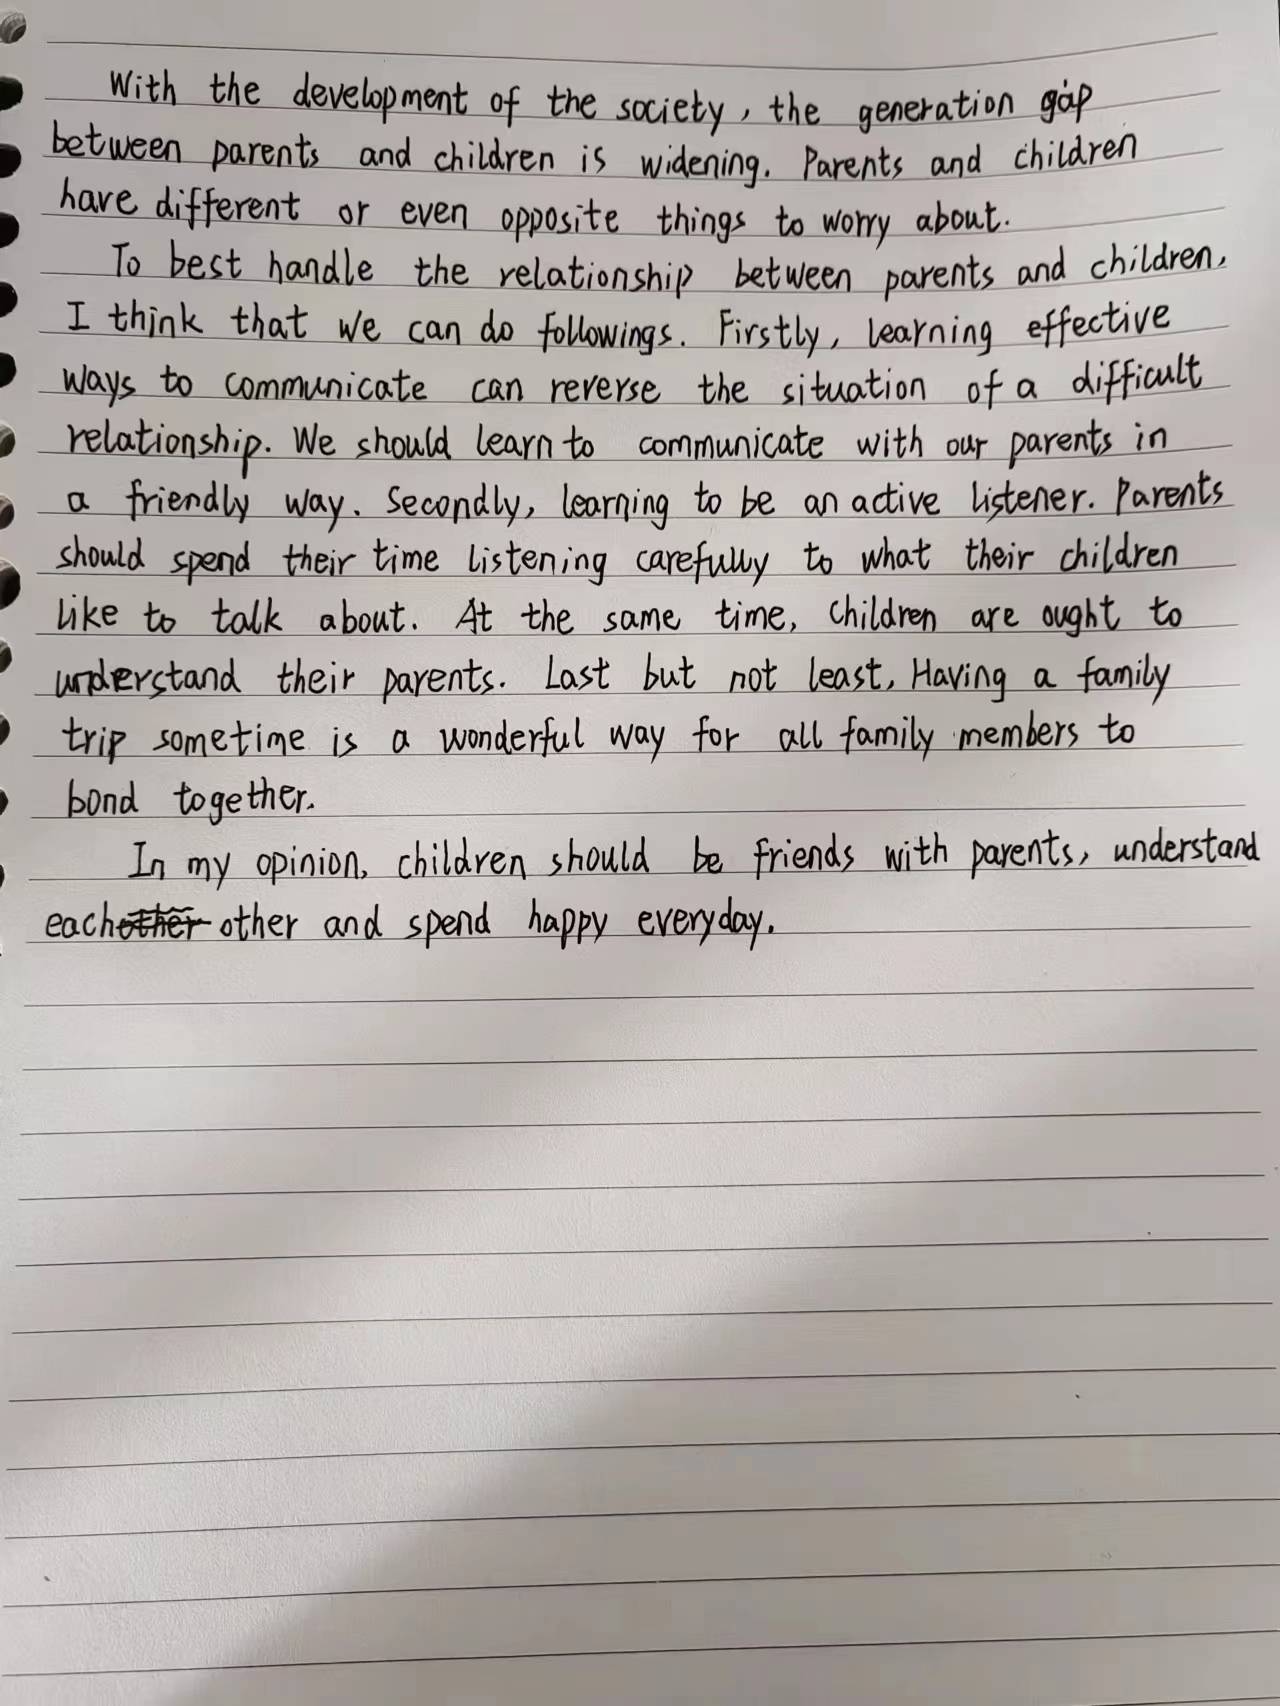 With the development of the society, the generation gap
between parents and children is widening. Parents and children
have different or even opposite things to worry about.
To best handle the relationship between parents and children,
I think that we can do followings. Firstly, learning effective
ways to communicate can reverse the situation of a difficult
relationship. We should learn to communicate with our parents in
a friendly way. Secondly, learning to be an active listener. Parents
should spend their time listening carefully to what their children
like to talk about. At the same time, children are ought to
understand their parents. Last but not least, Having a family
trip sometime is a wonderful way for all family members to
bond together.
In my opinion, children should be friends with parents, understand
each other and spend happy everyday.